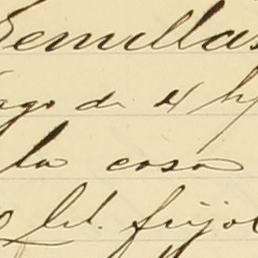 Semillas
ago de 4 h
la casa
lbl. frijol